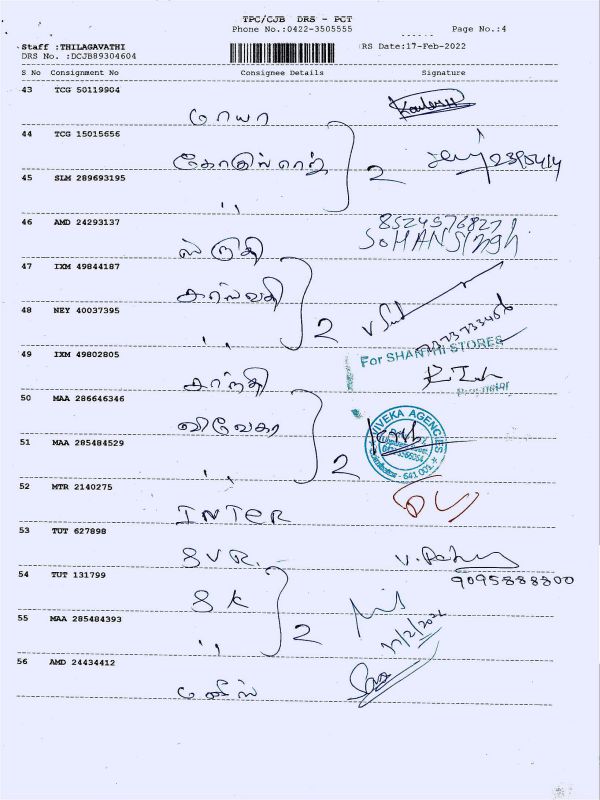 TPC/CJB DRS - PCT
Phone No.:0422-3505555 Page No.:4
Staff :THILAGAVATHI RS Date:17-Feb-2022
DRS No. :DCJB89304604
S No Consignment No Consignee Details Signature
43 TCG 50119904
மாயா
44 TCG 15015656
2
45 SLM 289693195
,,
46 AMD 24293137
8524576827
SOHANSingh
ஸ்ருதி
47 IXM 49844187
சரஸ்வதி
48 NEY 40037395
,, 2
7373733456
49 IXM 49802805
For SHANTHI STORES
சாந்தி
Proprietor
50 MAA 286646346
விவேகா
VIVEKA AGENCIES
51 MAA 285484529
Coimbatore - 641 001.
,, 2
52 MTR 2140275
INTER
53 TUT 627898
SVR.
9095888800
54 TUT 131799
SK
55 MAA 285484393
,, 2
17/2/2022
56 AMD 24434412